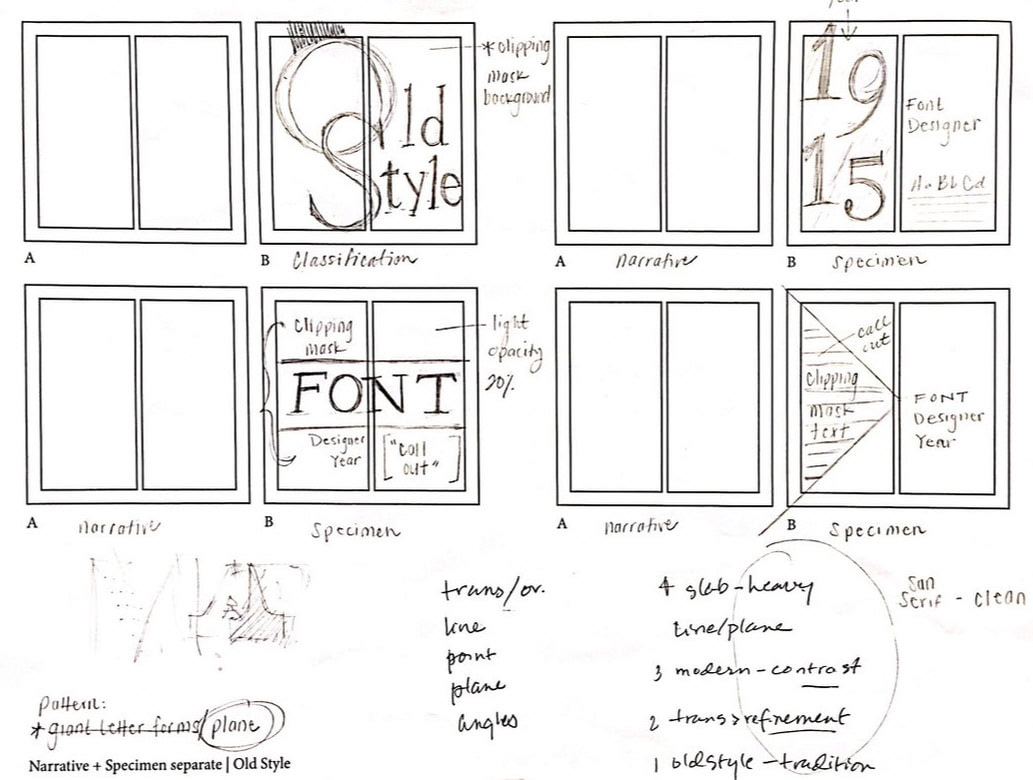 year
Old
Style
* clipping
mask
background
19
15
Font
Designer
Aa Bb Cd
A
B Classification
A narrative
B Specimen
Clipping
mask
FONT
Designer
Year
["call
out"]
light
opacity
20%
call
out
Clipping
mask
text
FONT
Designer
Year
A narrative
B Specimen
A narrative
B Specimen
trans/or.
line
point
plane
angles
4 slab-heavy
line/plane
3 modern-contrast
2 trans>refinement
1 oldstyle-tradition
San
Serif - clean
pattern:
* giant letter forms/plane
Narrative + Specimen separate | Old Style